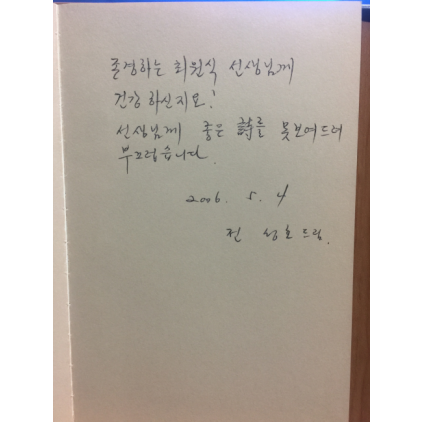 존경하는 최원식 선생님께
건강하신지요!
선생님께 좋은 詩를 못보여드려
부끄럽습니다.
2006. 5. 4
전 성호 드림.